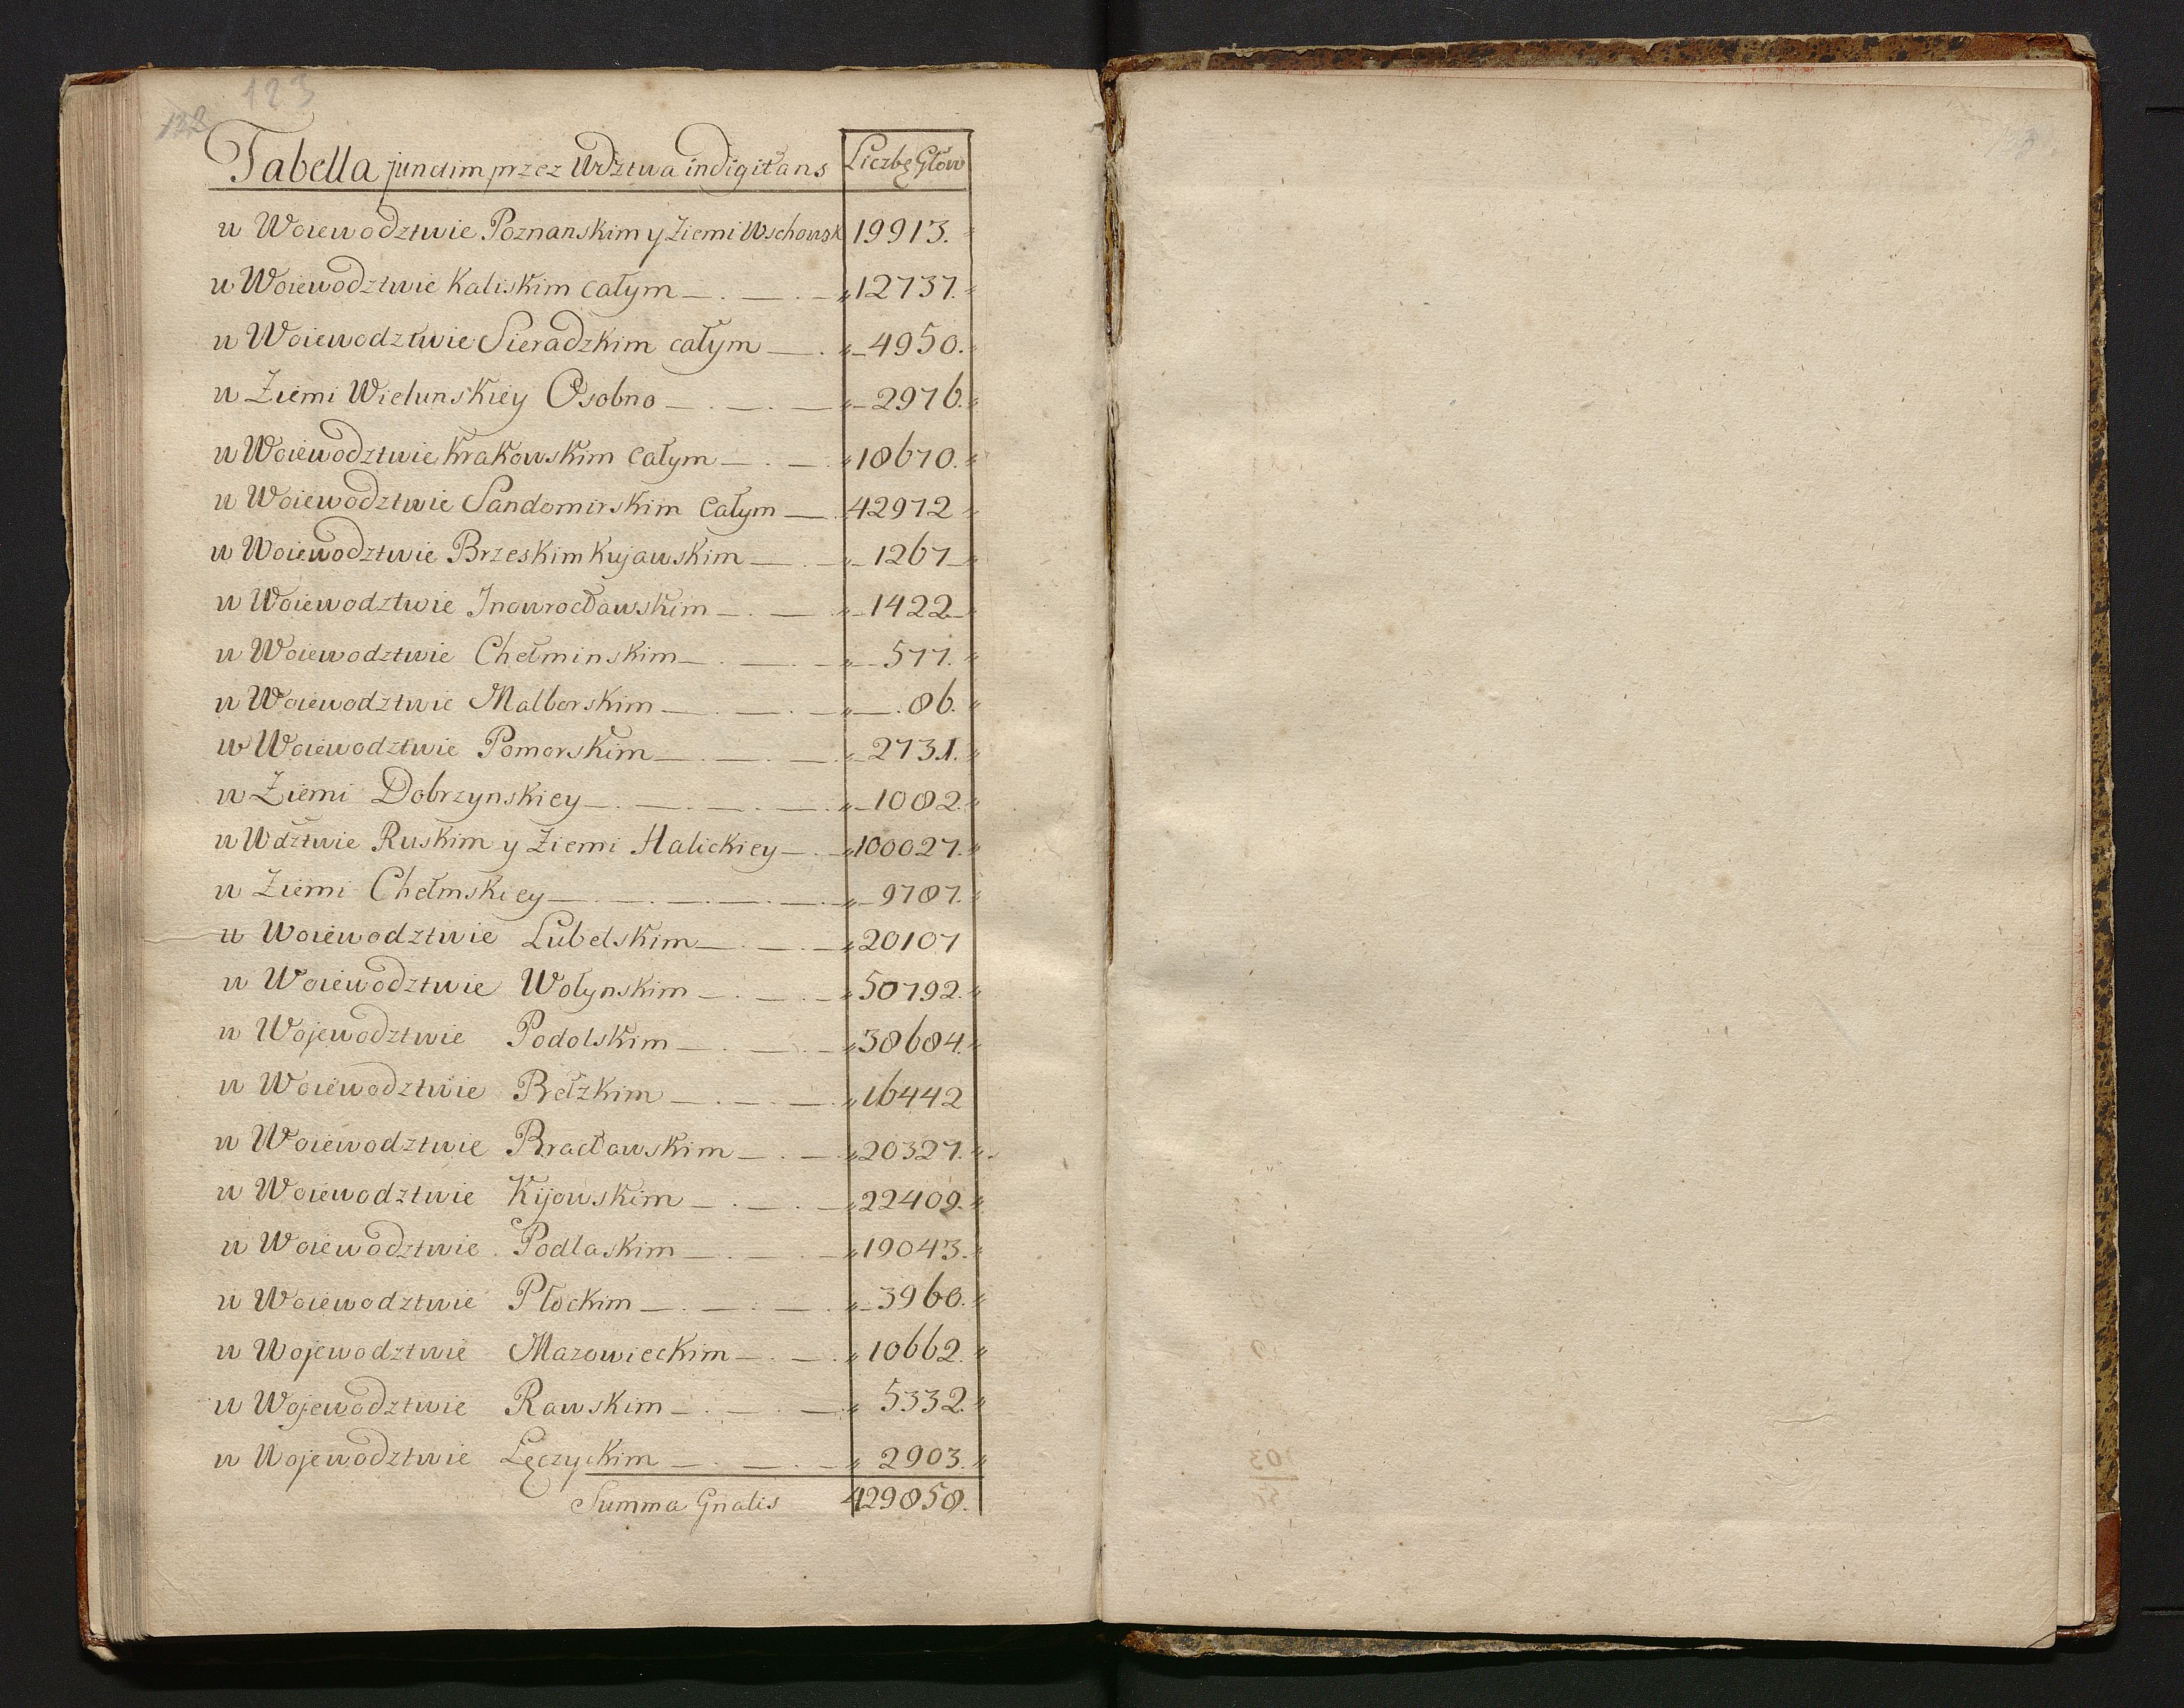 123
122
Tabella junctim przez Wdztwa indigitans Liczbę Głow
w Woiewodztwie Poznanskim y Ziemi Wschowsk 19913.
w Woiewodztwie Kaliskim całym 12737.
w Woiewodztwie Sieradzkim całym 4950.
w Ziemi Wielunskiey Osobno 2976.
w Woiewodztwie Krakowskim całym 18670.
w Woiewodztwie Sandomirskim Całym 42972
w Woiewodztwie Brzeskim Kujawskim 1267
w Woiewodztwie Inowrocławskim 1422
w Woiewodztwie Chełminskim 577.
w Woiewodztwie Malborskim 86.
w Woiewodztwie Pomorskim 2731.
w Ziemi Dobrzynskiey 1082.
w Wdztwie Ruskim y Ziemi Halickiey 100027.
w Ziemi Chełmskiey 9787.
w Woiewodztwie Lubelskim 20107
w Woiewodztwie Wołynskim 50792.
w Wojewodztwie Podolskim 38684.
w Woiewodztwie Bełzkim 16442
w Woiewodztwie Bracławskim 20327.
w Woiewodztwie Kijowskim 22409.
w Woiewodztwie Podlaskim 19043.
w Woiewodztwie Płockim 3960.
w Wojewodztwie Mazowieckim 10662.
w Wojewodztwie Rawskim 5332.
w Wojewodztwie Łęczyckim 2903.
Summa Gnalis 429858.